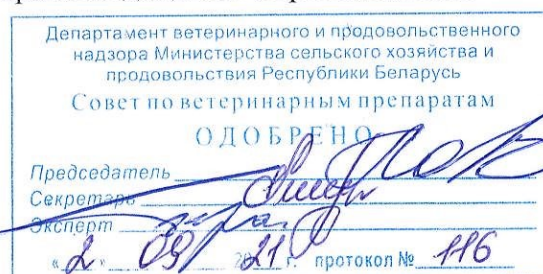 Департамент ветеринарного и продовольственного
надзора Министерства сельского хозяйства и
продовольствия Республики Беларусь
Совет по ветеринарным препаратам
ОДОБРЕНО
Председатель
Секретарь
Эксперт
« 2 » 09 2021 г. протокол № 116